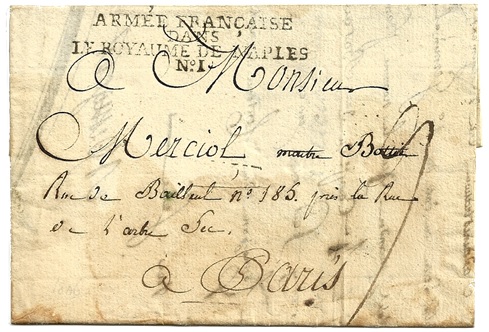 ARMÉE FRANÇAISE
DANS
LE ROYAUME DE NAPLES
N.º 1.
A Monsieur
Monsieur Merciol maitre
Rue de Bailleul nº 185. près la Rue
de l'arbre Sec.
à Paris